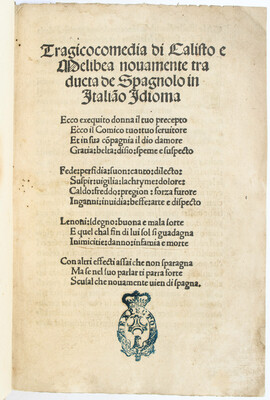 Tragicocomedia di Calisto e
Melibea nouamente tra
ducta de Spagnolo in
Italiāo Idioma
Ecco exequito donna il tuo precepto
Ecco il Comico tuo: tuo seruitore
Et in sua cōpagnia il dio damore
Gratia: belta: disio: speme e suspecto
Fede: perfidia: suon: canto: dilecto:
Suspir: uigilia: lachryme: dolore:
Caldo: freddo: pregion: forza furore
Inganni: inuidia: beffe: arte e dispecto
Lenoni: sdegno: buona e mala sorte
E quel chal fin di lui sol si guadagna
Inimicitie: danno: infamia e morte
Con altri effecti assai che non sparagna
Ma se nel suo parlar ti parra forte
Scusal che nouamente uien di spagna.